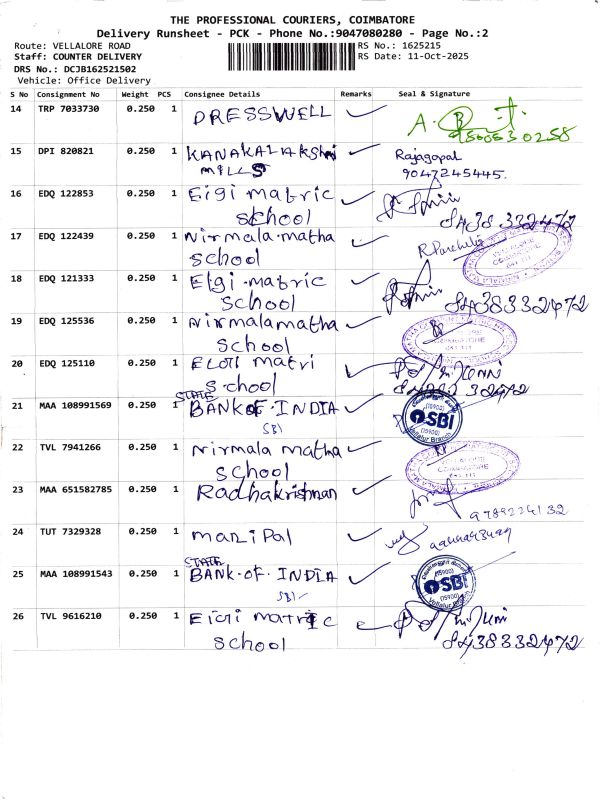 THE PROFESSIONAL COURIERS, COIMBATORE
Delivery Runsheet - PCK - Phone No.:9047080280 - Page No.:2
Route: VELLALORE ROAD
RS No.: 1625215
Staff: COUNTER DELIVERY
RS Date: 11-Oct-2025
DRS No.: DCJB162521502
Vehicle: Office Delivery
S No Consignment No Weight PCS Consignee Details Remarks Seal & Signature
14 TRP 7033730 0.250 1 DRESSWELL
15 DPI 820821 0.250 1 KANAKALAKSHMI
MILLS
Rajagopal
9047245445.
16 EDQ 122853 0.250 1 Elgi matric
school
8438332472
17 EDQ 122439 0.250 1 Nirmala-matha
school
18 EDQ 121333 0.250 1 Elgi-matric
school
8438332472
19 EDQ 125536 0.250 1 Nirmalamatha
school
COIMBATORE
20 EDQ 125110 0.250 1 ELGI matri
school
21 MAA 108991569 0.250 1 STATE
BANK OF INDIA
SBI
(15900)
SBI
Vellalur Branch
22 TVL 7941266 0.250 1 Nirmala matha
school
COIMBATORE
23 MAA 651582785 0.250 1 Radhakrishnan
24 TUT 7329328 0.250 1 manipal
25 MAA 108991543 0.250 1 STATE
BANK-OF-INDIA
SBI
(15900)
SBI
Vellalur Branch
26 TVL 9616210 0.250 1 Elgi matric
school
8438332472